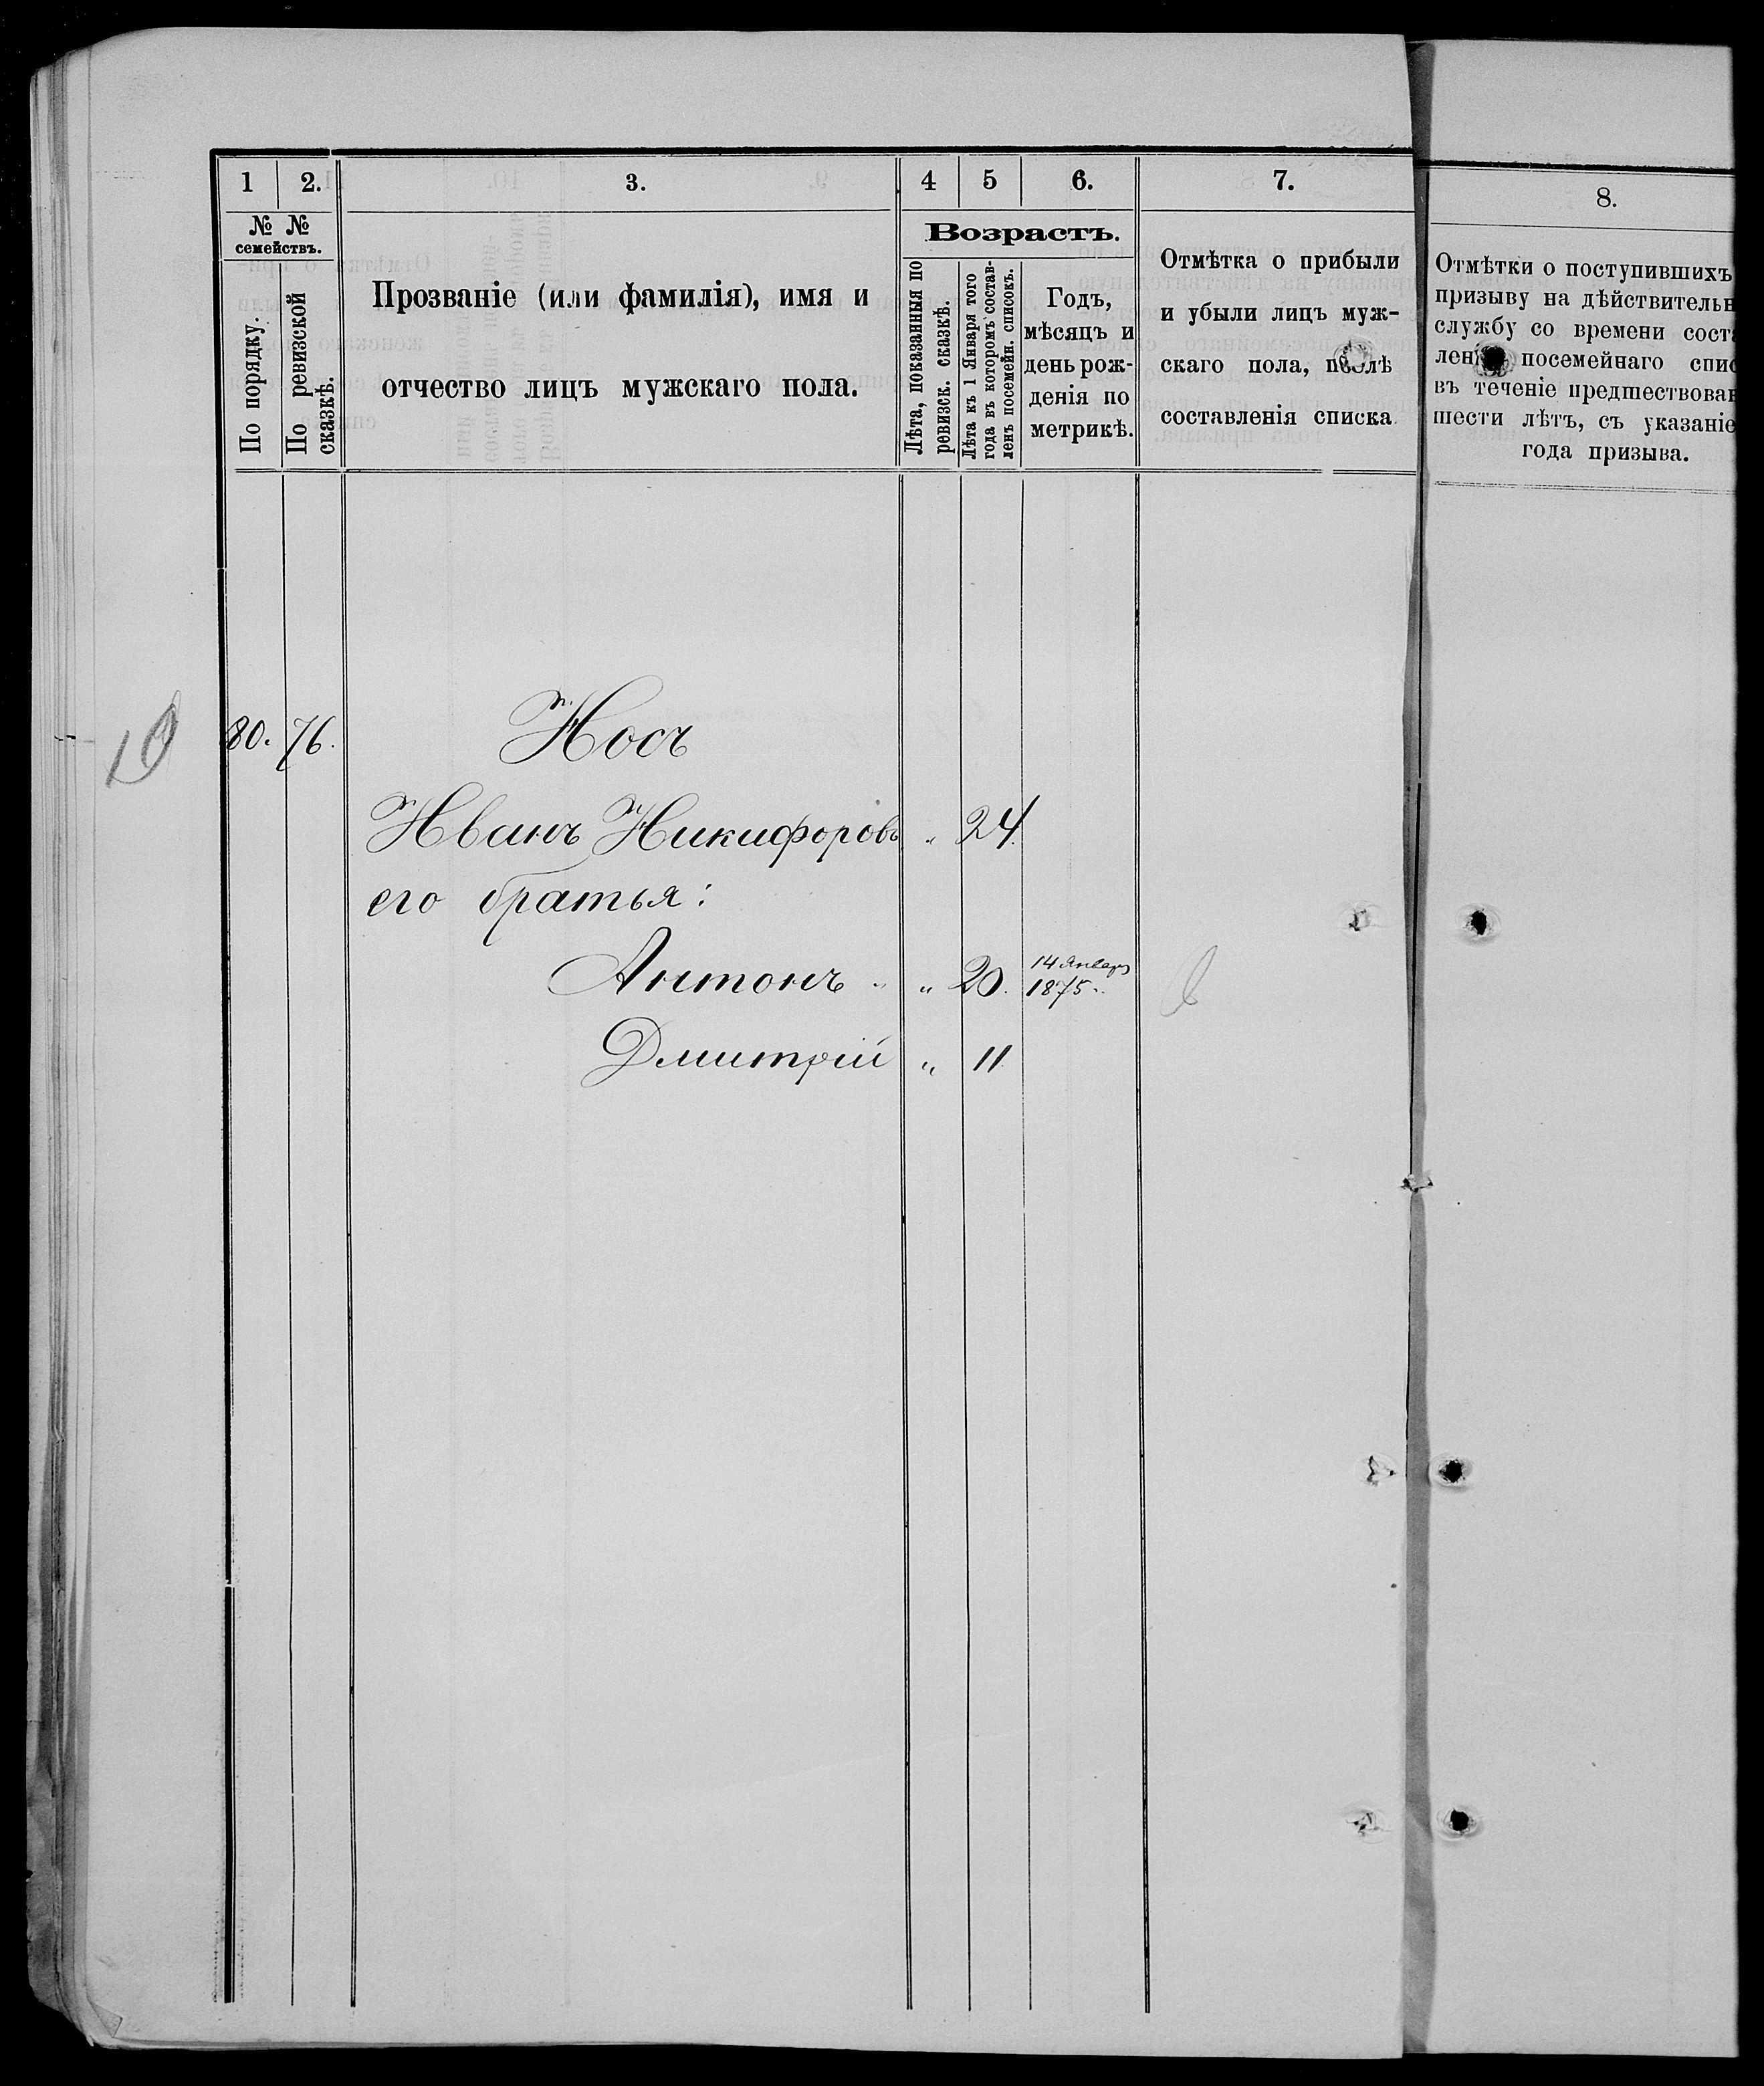 1 2. 3. 4 5 6. 7. 8.
№ № семействъ.
По порядку.
По ревизской сказкѣ.
Прозваніе (или фамилія), имя и
отчество лицъ мужскаго пола.
Возрастъ.
Лѣта, показанныя по
ревизск. сказкѣ.
Лѣта къ 1 Января того
года въ которомъ состав-
ленъ посемейн. списокъ.
Годъ,
мѣсяцъ и
день рож-
денія по
метрикѣ.
Отмѣтка о прибыли
и убыли лицъ муж-
скаго пола, послѣ
составленія списка
Отмѣтки о поступившихъ
призыву на дѣйствительн
службу со времени соста
лен посемейнаго спис
въ теченіе предшествовав
шести лѣтъ, съ указаніе
года призыва.
10
80. 76. Носъ
Иванъ Никифоровъ " 24.
его братья:
Антонъ " " 20. 14 Январ
1875.
Дмитрій " 11